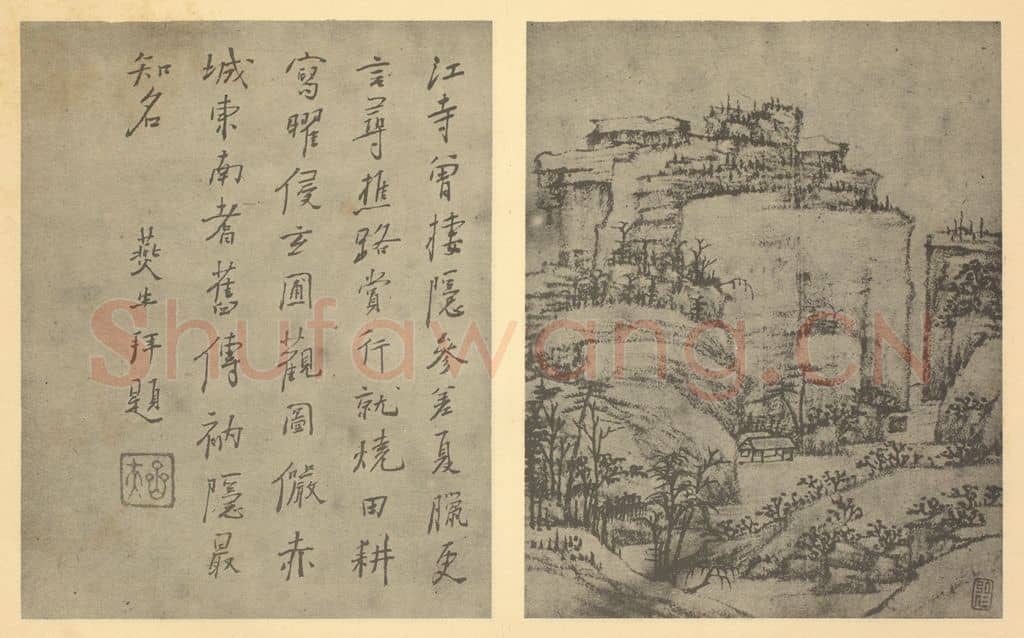 江寺曾棲隱參差夏臘更
言尋樵路賞行就燒田耕
寫曜侵玄圃觀圖儼赤
城東南耆舊傳衲隱最
知名
燕生拜題
Shufawang.CN